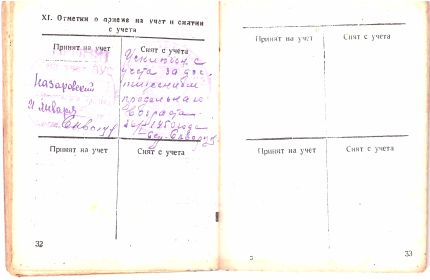 XI. Отметки о приеме на учет и снятии
с учета
Принят на учет
Снят с учета
Казаровский
31 января
Исключен с
учета за дос
тижением
предельного
возраста
1950 года
Принят на учет
Снят с учета
32
Принят на учет
Снят с учета
Принят на учет
Снят с учета
33